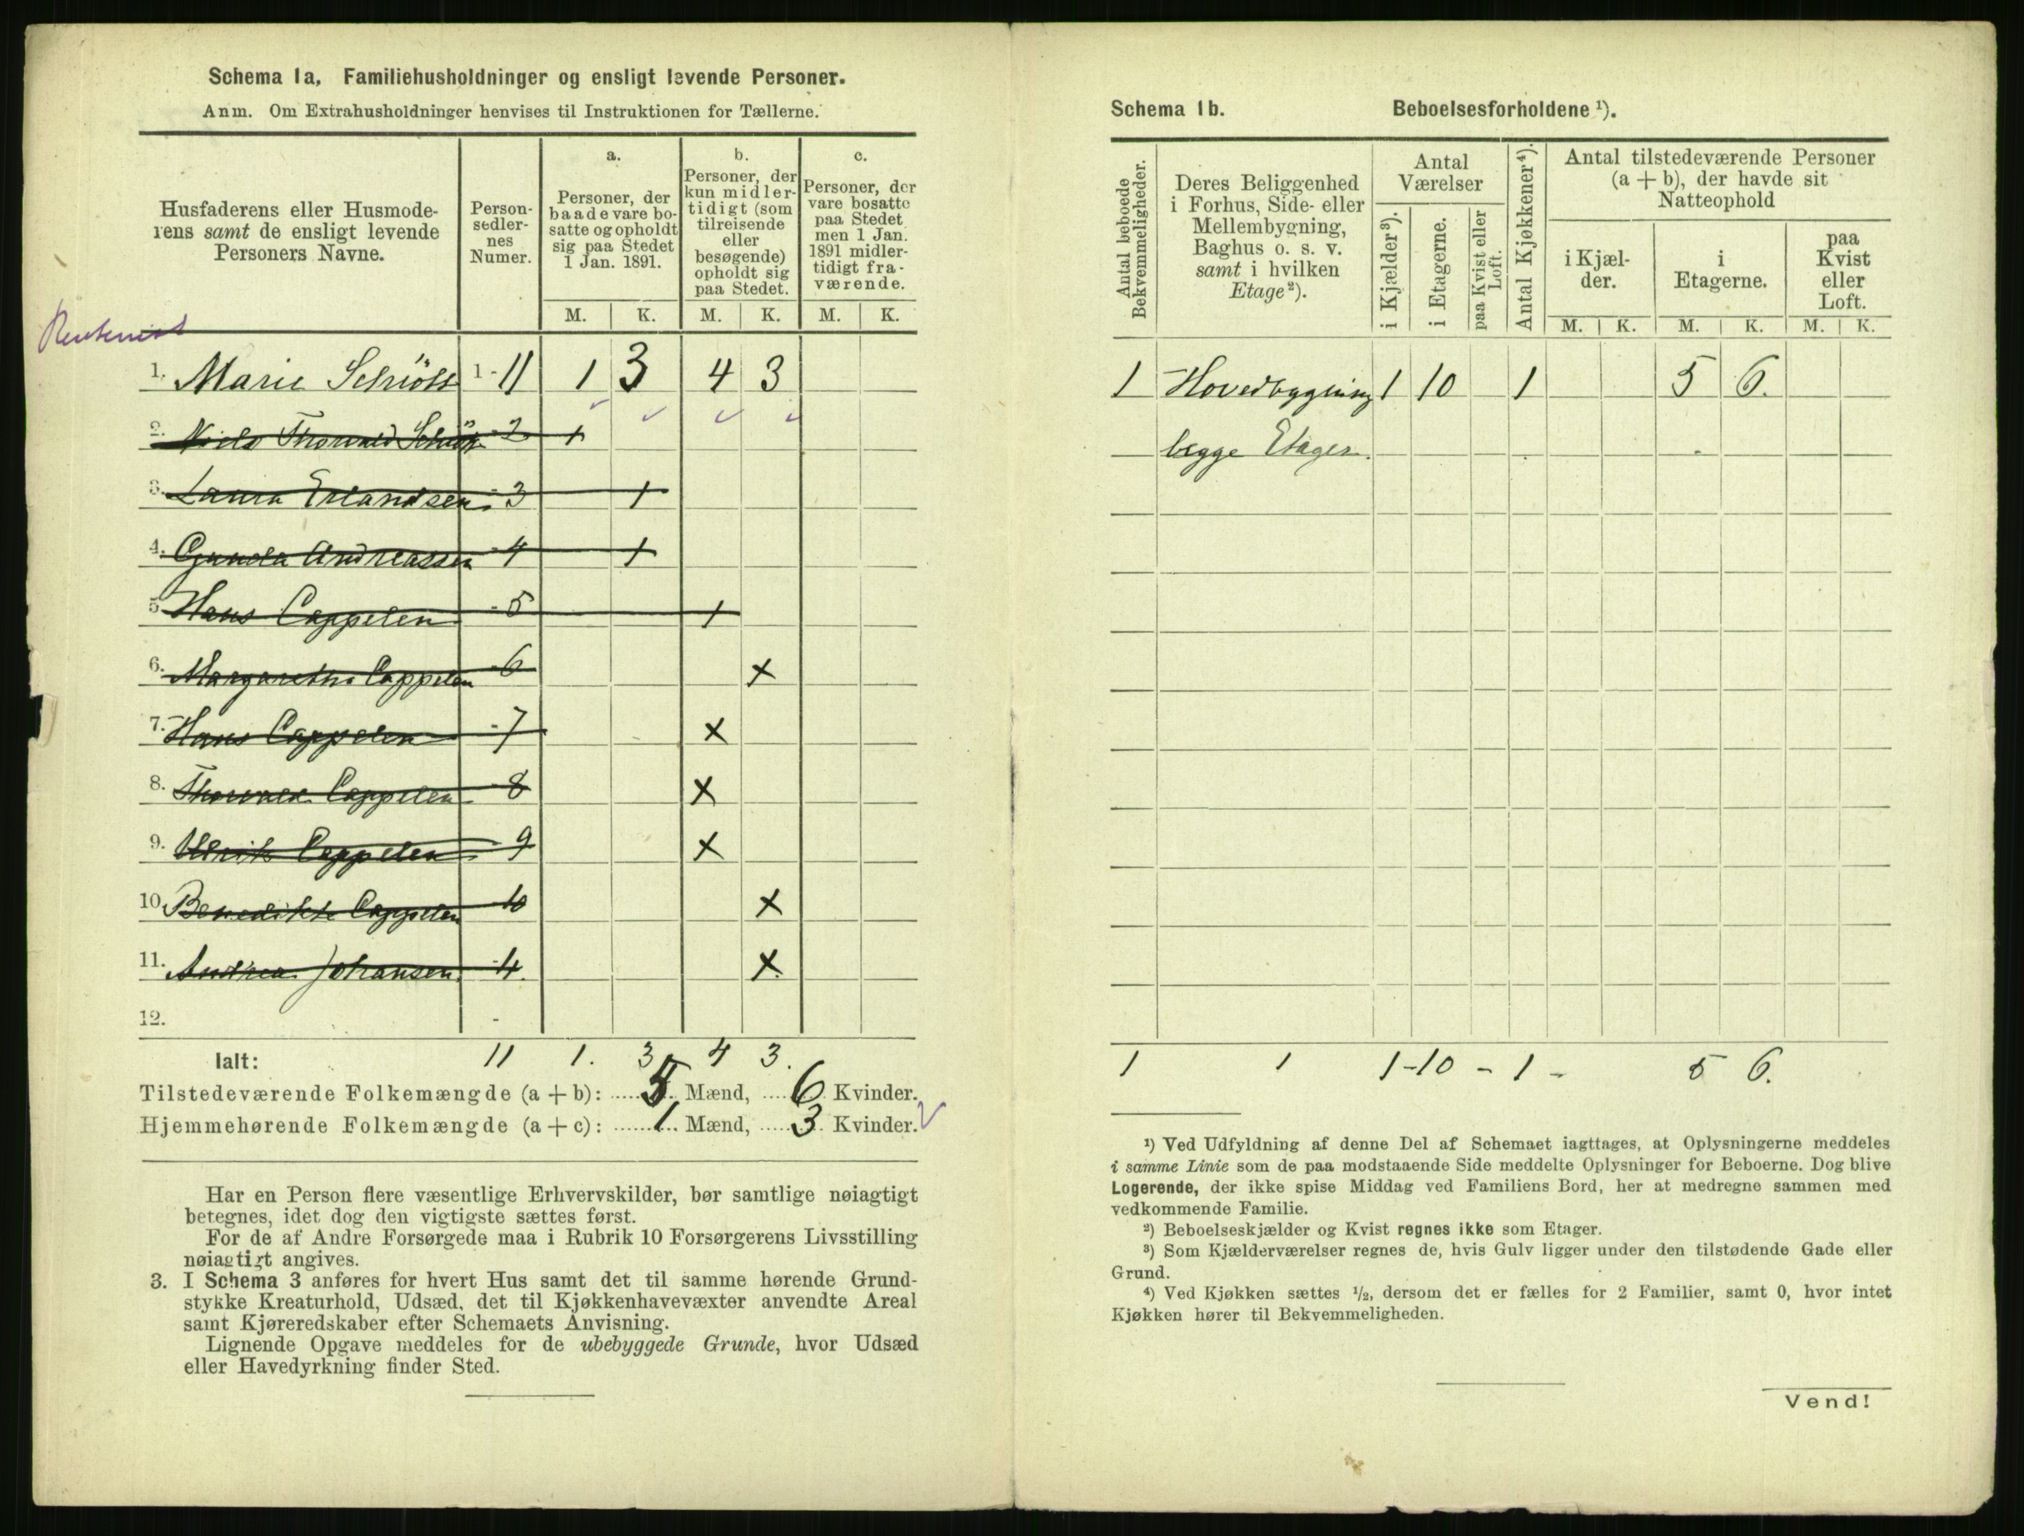 Schema 1a. Familiehusholdninger og ensligt levende Personer.
Anm. Om Extrahusholdninger henvises til Instruktionen for Tællerne.
Husfaderens eller Husmode-
rens samt de ensligt levende
Personers Navne.
Person-
sedler-
nes
Numer.
a.
Personer, der
baade vare bo-
satte og opholdt
sig paa Stedet
1 Jan. 1891.
b.
Personer, der
kun midler-
tidigt (som
tilreisende
eller
besøgende)
opholdt sig
paa Stedet.
c.
Personer, der
vare bosatte
paa Stedet
men 1 Jan.
1891 midler-
tidigt fra-
værende.
M. K. M. K. M. K.
Rentenist
1. Marie Schiött 1 - 11 1 3 4 3
2. Niels Thorvald Schiött - 2 1
3. Laura Erlandsen - 3 1
4. Gunda Andreassen - 4 1
5. Hans Cappelen - 5 1
6. Margarethe Cappelen - 6 x
7. Hans Cappelen - 7 x
8. Thorvald Cappelen - 8 x
9. Ulrik Cappelen - 9 x
10. Benedikte Cappelen - 10 x
11. Andrea Johansen - 11 x
12. -
Ialt: 11 1. 3 4 3.
Tilstedeværende Folkemængde (a + b): 5 Mænd, 6 Kvinder.
Hjemmehørende Folkemængde (a + c): 1 Mænd, 3 Kvinder.
Har en Person flere væsentlige Erhvervskilder, bør samtlige nøiagtigt
betegnes, idet dog den vigtigste sættes først.
For de af Andre Forsørgede maa i Rubrik 10 Forsørgerens Livsstilling
nøiagtigt angives.
3. I Schema 3 anføres for hvert Hus samt det til samme hørende Grund-
stykke Kreaturhold, Udsæd, det til Kjøkkenhavevæxter anvendte Areal
samt Kjøreredskaber efter Schemaets Anvisning.
Lignende Opgave meddeles for de ubebyggede Grunde, hvor Udsæd
eller Havedyrkning finder Sted.
Schema 1b. Beboelsesforholdene ¹).
Antal beboede
Bekvemmeligheder.
Deres Beliggenhed
i Forhus, Side- eller
Mellembygning,
Baghus o. s. v.
samt i hvilken
Etage²).
Antal
Værelser
i Kjælder³).
i Etagerne.
paa Kvist eller
Loft.
Antal Kjøkkener⁴).
Antal tilstedeværende Personer
(a + b), der havde sit
Natteophold
i Kjæl-
der.
i
Etagerne.
paa
Kvist
eller
Loft.
M. K. M. K. M. K.
1 Hovedbygning 1 10 1 5 6.
begge Etager.
1 1 1 - 10 - 1 - 5 6.
¹) Ved Udfyldning af denne Del af Schemaet iagttages, at Oplysningerne meddeles
i samme Linie som de paa modstaaende Side meddelte Oplysninger for Beboerne. Dog blive
Logerende, der ikke spise Middag ved Familiens Bord, her at medregne sammen med
vedkommende Familie.
²) Beboelseskjælder og Kvist regnes ikke som Etager.
³) Som Kjælderværelser regnes de, hvis Gulv ligger under den tilstødende Gade eller
Grund.
⁴) Ved Kjøkken sættes ½, dersom det er fælles for 2 Familier, samt 0, hvor intet
Kjøkken hører til Bekvemmeligheden.
Vend!